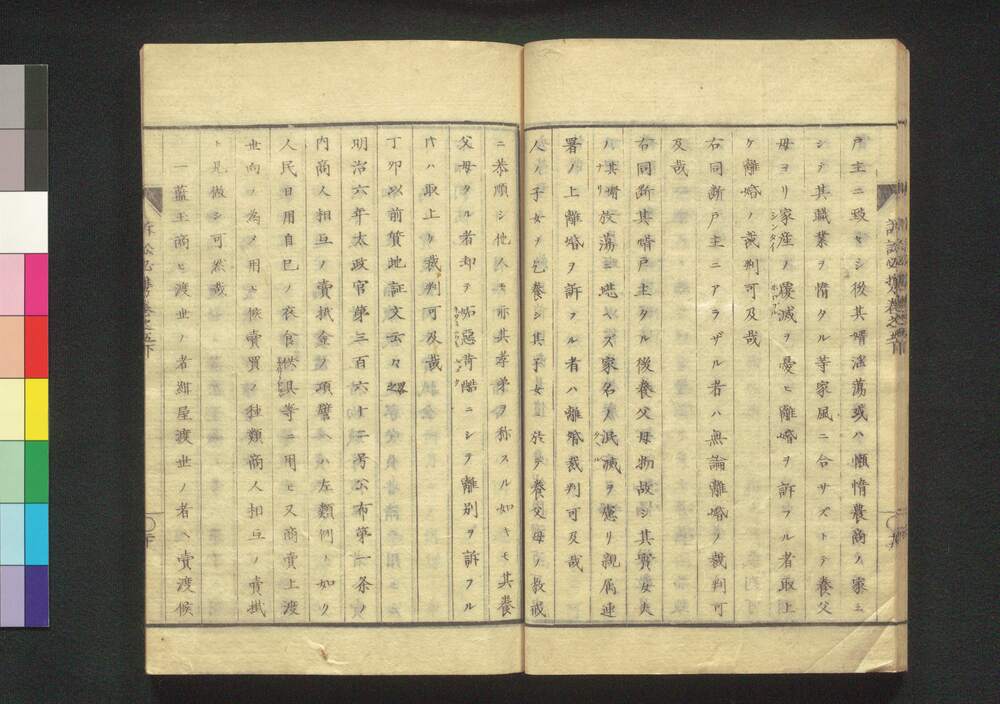 戸主ニ致セシ後其婿滛蕩或ハ懶惰農商ノ家ニ
シテ其職業ヲ惰タル等家風ニ合サズトテ養父
母ヨリ家産ノ覆滅ヲ憂ヒ離婚ヲ訴フル者取上
シンタイ
ケ離婚ノ裁判可及哉
右同断戸主ニアラザル者ハ無論離婚ノ裁判可
及哉
右同断其婿戸主タル後養父母物故シ其實女夫
ハ其婿放蕩ニ堪ヘズ家名ノ泯滅ヲ慮リ親属連
署ノ上離婚ヲ訴フル者ハ離婚裁判可及哉
人ノ子女ヲ乞養シ其子女於テ養父母ノ教戒
ニ恭順シ他人モ亦其孝弟ヲ称スル如キモ其養
父母タル者却テ妬惡苛酷ニシテ離別ヲ訴フル
片ハ取上ケ裁判可及哉
丁卯以前質地証文云々之畧
明治六年太政官第三百六十二号公布第一条ノ
内商人相互ノ賣掛金ノ項譬ヘハ左類例ノ如ク
人民日用自己ノ衣食供具等ニ用ヒ又商賣上渡
世向ノ為メ用ヒ候賣買ノ種類商人相互ノ賣掛
ト見做シ可然哉
一藍玉商ヒ渡世ノ者紺屋渡世ノ者ヘ賣渡候